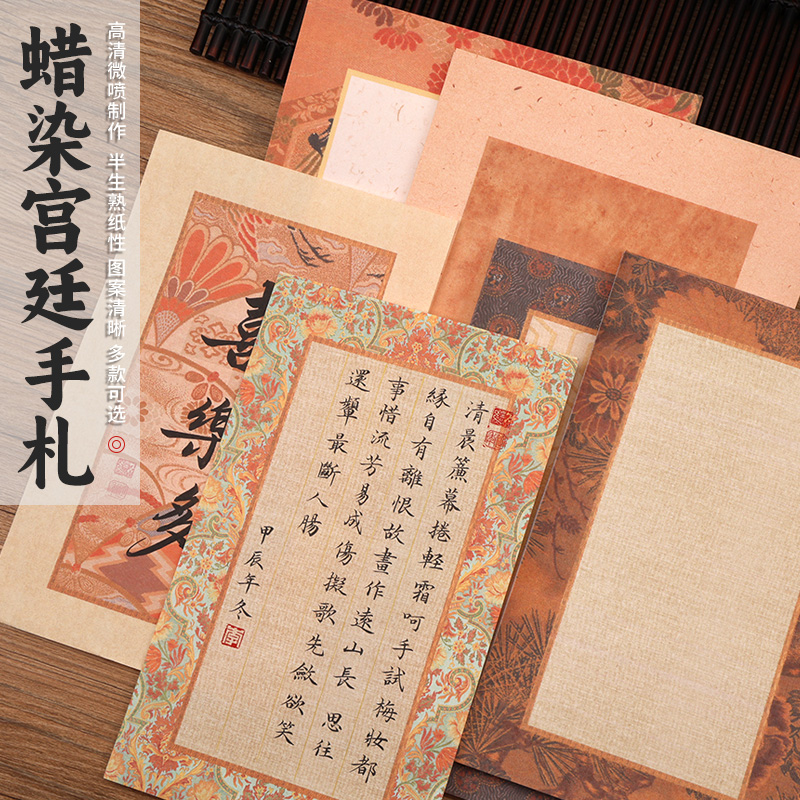 蜡染宫廷手札
高清微喷制作 半生熟纸性 图案清晰 多款可选
喜樂多
清晨簾幕捲輕霜呵手試梅妝都
緣自有離恨故畫作遠山長 思往
事惜流芳易成傷擬歌先斂欲笑
還顰最斷人腸
甲辰年冬